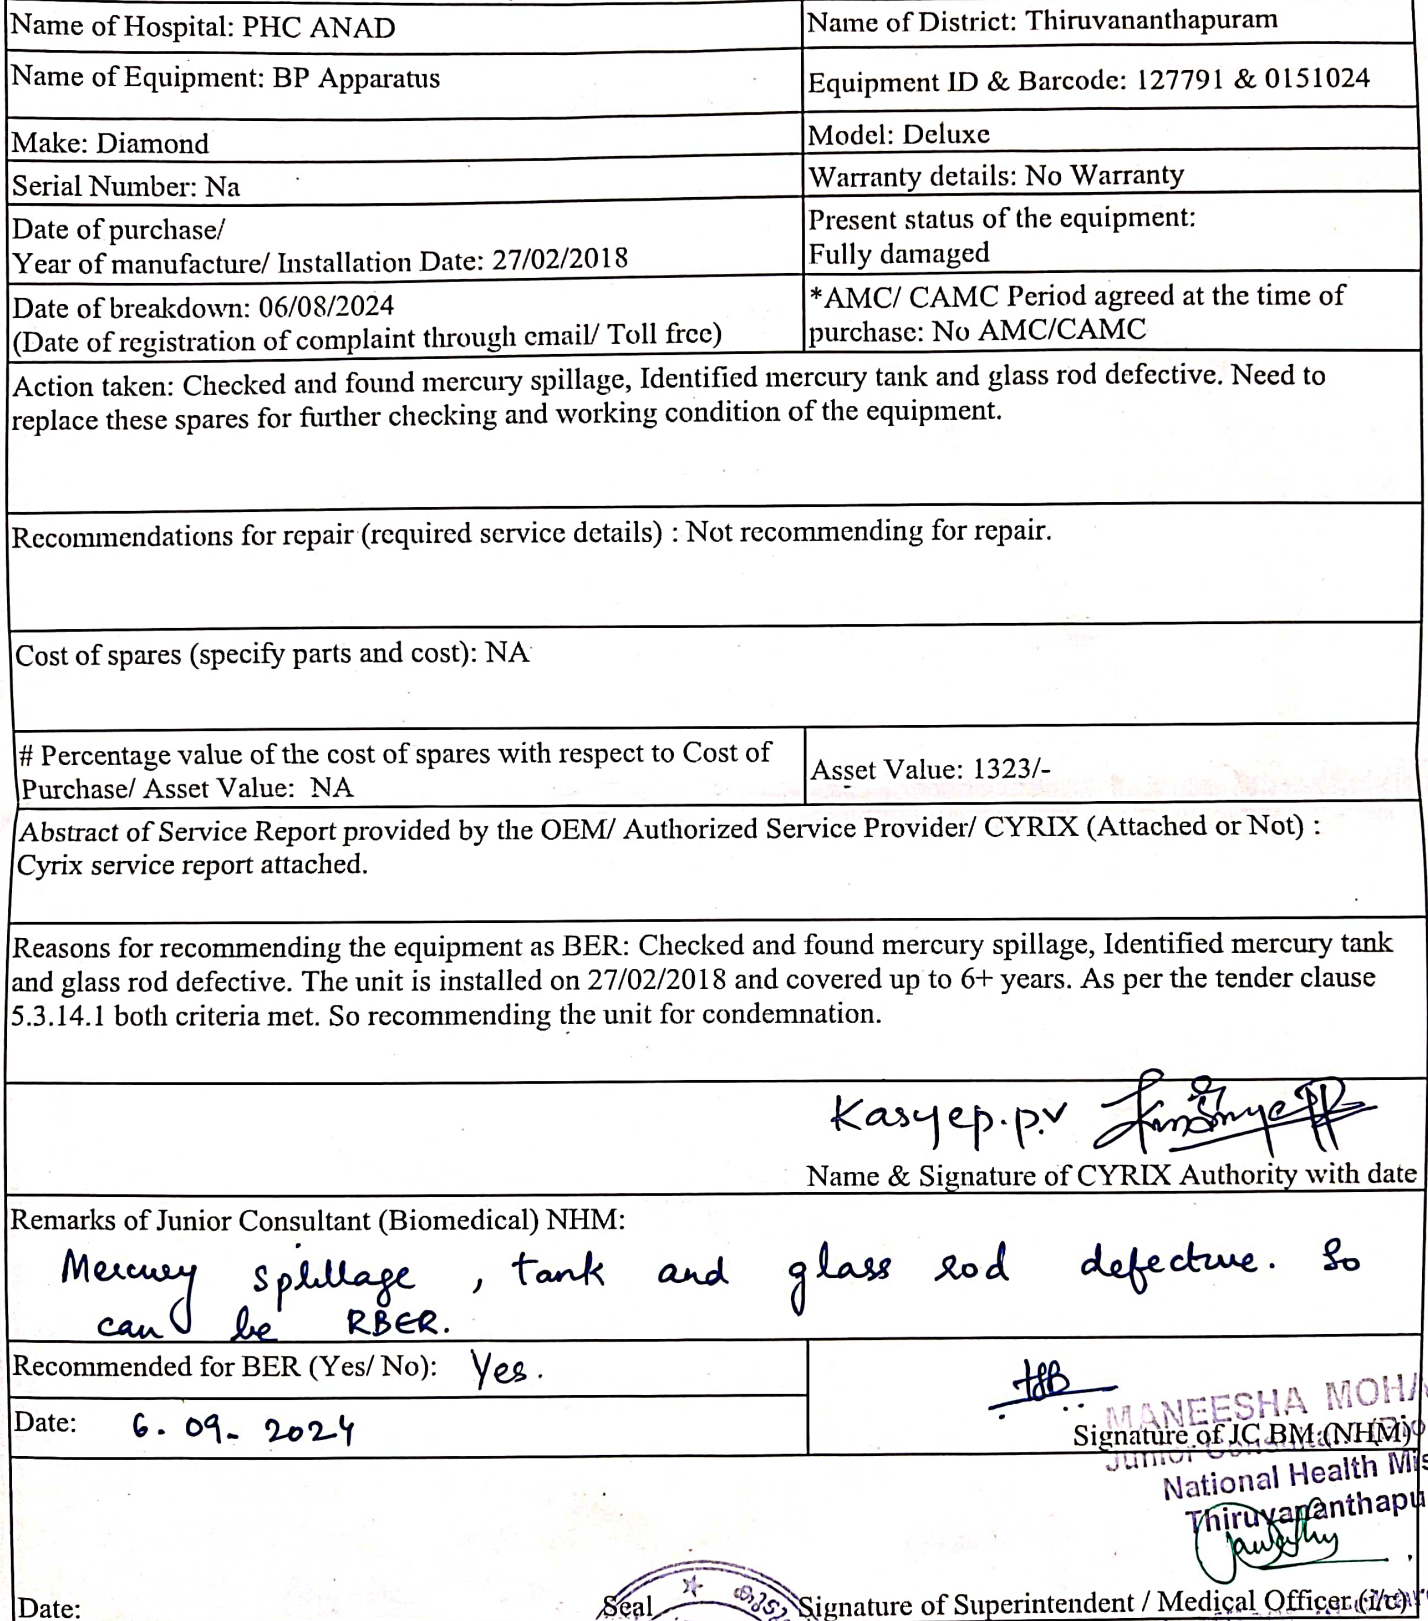 Name of Hospital: PHC ANAD
Name of District: Thiruvananthapuram
Name of Equipment: BP Apparatus
Equipment ID & Barcode: 127791 & 0151024
Make: Diamond
Model: Deluxe
Serial Number: Na
Warranty details: No Warranty
Date of purchase/
Year of manufacture/ Installation Date: 27/02/2018
Present status of the equipment:
Fully damaged
Date of breakdown: 06/08/2024
(Date of registration of complaint through email/ Toll free)
*AMC/ CAMC Period agreed at the time of
purchase: No AMC/CAMC
Action taken: Checked and found mercury spillage, Identified mercury tank and glass rod defective. Need to
replace these spares for further checking and working condition of the equipment.
Recommendations for repair (required service details) : Not recommending for repair.
Cost of spares (specify parts and cost): NA
# Percentage value of the cost of spares with respect to Cost of
Purchase/ Asset Value: NA
Asset Value: 1323/-
Abstract of Service Report provided by the OEM/ Authorized Service Provider/ CYRIX (Attached or Not) :
Cyrix service report attached.
Reasons for recommending the equipment as BER: Checked and found mercury spillage, Identified mercury tank
and glass rod defective. The unit is installed on 27/02/2018 and covered up to 6+ years. As per the tender clause
5.3.14.1 both criteria met. So recommending the unit for condemnation.
Kasyep.p.v
Name & Signature of CYRIX Authority with date
Remarks of Junior Consultant (Biomedical) NHM:
Mercury spillage, tank and glass rod defective. So
can be RBER.
Recommended for BER (Yes/ No): Yes.
Date: 6.09-2024
MANEESHA MOHA
Signature of JC BM (NHM)
Junior
National Health Mis
Thiruvananthapu
Date:
Seal
Signature of Superintendent / Medical Officer (i/c)